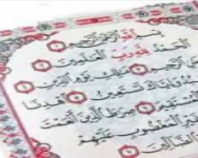 بسم الله الرحمن الرحيم
الحمد لله رب العلمين
الرحيم ملك يوم الدين
وإياك نستعين اهدنا
المستقيم صراط الذين أنعمت
المغضوب عليهم
الضالين